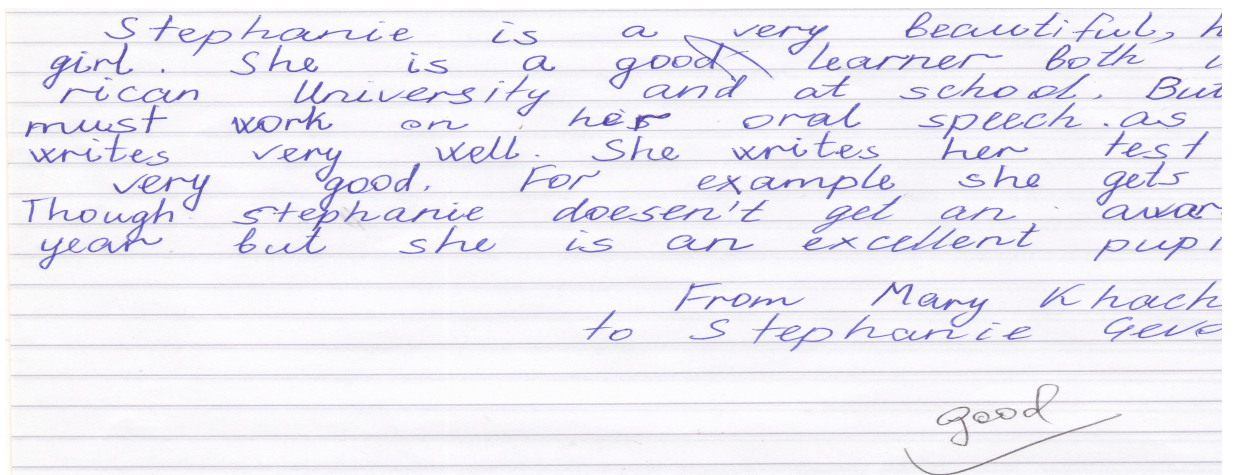 Stephanie is a very beautiful, h
girl. She is a good learner both i
rican University and at school. But
must work on her oral speech. as
writes very well. She writes her test
very good. For example she gets
Though stephanie doesen't get an awar
year but she is an excellent pupi
From Mary Khach
to Stephanie Gevo
good